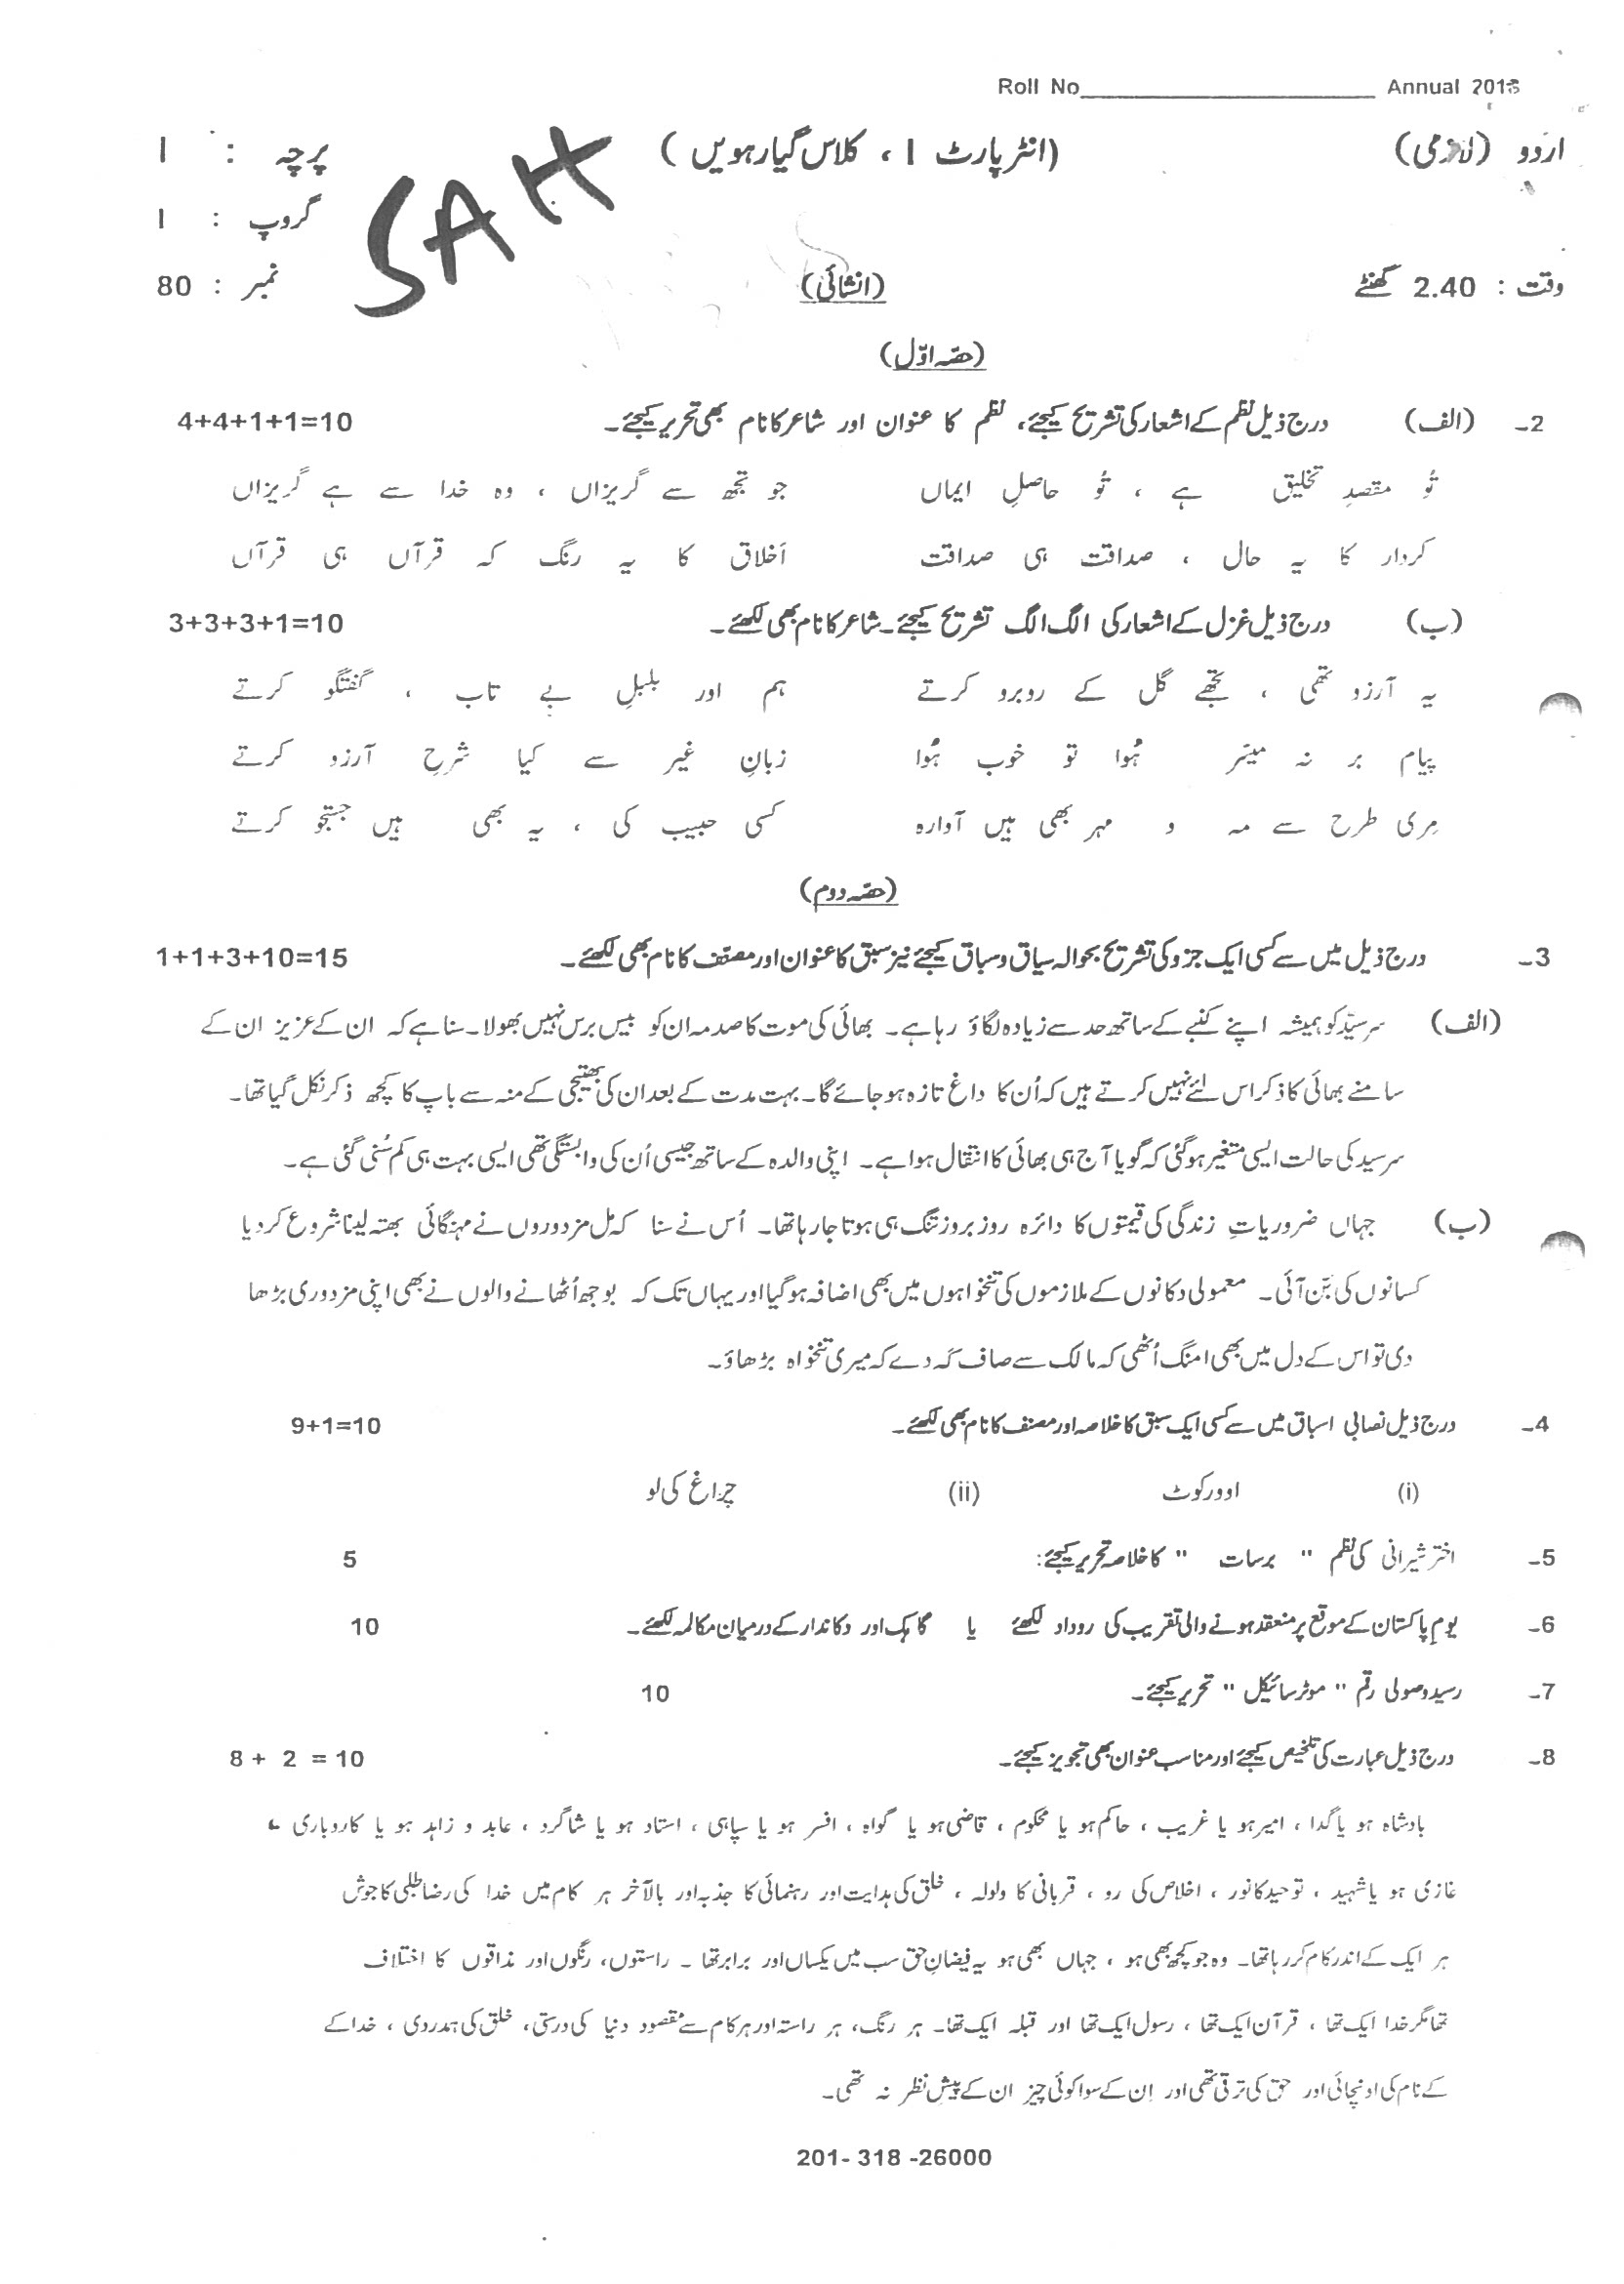 Roll No____________________ Annual 2018
اردو (لازمی) (انٹر پارٹ I ، کلاس گیارھویں) پرچہ : I
گروپ : I
SAH
وقت : 2.40 گھنٹے (انشائی) نمبر : 80
(حصّہ اوّل)
2۔ (الف) درج ذیل نظم کے اشعار کی تشریح کیجئے، نظم کا عنوان اور شاعر کا نام بھی تحریر کیجئے۔ 4+4+1+1=10
تُو مقصدِ تخلیق ہے ، تُو حاصلِ ایماں جو تجھ سے گریزاں ، وہ خدا سے ہے گریزاں
کردار کا یہ حال ، صداقت ہی صداقت اَخلاق کا یہ رنگ کہ قرآں ہی قرآں
(ب) درج ذیل غزل کے اشعار کی الگ الگ تشریح کیجئے۔ شاعر کا نام بھی لکھئے۔ 3+3+3+1=10
یہ آرزو تھی ، تجھے گل کے روبرو کرتے ہم اور بلبلِ بے تاب ، گفتگو کرتے
پیام بر نہ میسّر ہُوا تو خوب ہُوا زبانِ غیر سے کیا شرحِ آرزو کرتے
مِری طرح سے مہ و مہر بھی ہیں آوارہ کسی حبیب کی ، یہ بھی ہیں جستجو کرتے
(حصّہ دوم)
3۔ درج ذیل میں سے کسی ایک جزو کی تشریح بحوالہ سیاق و سباق کیجئے نیز سبق کا عنوان اور مصنّف کا نام بھی لکھئے۔ 1+1+3+10=15
(الف) سرسیّد کو ہمیشہ اپنے کنبے کے ساتھ حد سے زیادہ لگاؤ رہا ہے۔ بھائی کی موت کا صدمہ ان کو بیس برس نہیں بھولا۔ سنا ہے کہ ان کے عزیز ان کے
سامنے بھائی کا ذکر اس لئے نہیں کرتے ہیں کہ اُن کا داغ تازہ ہو جائے گا۔ بہت مدت کے بعد ان کی بھتیجی کے منہ سے باپ کا کچھ ذکر نکل گیا تھا۔
سرسید کی حالت ایسی متغیر ہو گئی کہ گویا آج ہی بھائی کا انتقال ہوا ہے۔ اپنی والدہ کے ساتھ جیسی اُن کی وابستگی تھی ایسی بہت ہی کم سُنی گئی ہے۔
(ب) جہاں ضروریاتِ زندگی کی قیمتوں کا دائرہ روز بروز تنگ ہی ہوتا جا رہا تھا۔ اُس نے سنا کہ مل مزدوروں نے مہنگائی بھتہ لینا شروع کر دیا
کسانوں کی بَن آئی۔ معمولی دکانوں کے ملازموں کی تنخواہوں میں بھی اضافہ ہو گیا اور یہاں تک کہ بوجھ اُٹھانے والوں نے بھی اپنی مزدوری بڑھا
دی تو اس کے دل میں بھی امنگ اُٹھی کہ مالک سے صاف کہ دے کہ میری تنخواہ بڑھاؤ۔
4۔ درج ذیل نصابی اسباق میں سے کسی ایک سبق کا خلاصہ اور مصنف کا نام بھی لکھئے۔ 9+1=10
(i) اوورکوٹ (ii) چراغ کی لو
5۔ اختر شیرانی کی نظم " برسات " کا خلاصہ تحریر کیجئے: 5
6۔ یومِ پاکستان کے موقع پر منعقد ہونے والی تقریب کی روداد لکھئے یا گاہک اور دکاندار کے درمیان مکالمہ لکھئے۔ 10
7۔ رسید وصولی رقم " موٹر سائیکل " تحریر کیجئے۔ 10
8۔ درج ذیل عبارت کی تلخیص کیجئے اور مناسب عنوان بھی تجویز کیجئے۔ 8 + 2 = 10
بادشاہ ہو یا گدا ، امیر ہو یا غریب ، حاکم ہو یا محکوم ، قاضی ہو یا گواہ ، افسر ہو یا سپاہی ، استاد ہو یا شاگرد ، عابد و زاہد ہو یا کاروباری ،
غازی ہو یا شہید ، توحید کا نور ، اخلاص کی رو ، قربانی کا ولولہ ، خلق کی ہدایت اور رہنمائی کا جذبہ اور بالآخر ہر کام میں خدا کی رضا طلبی کا جوش
ہر ایک کے اندر کام کر رہا تھا۔ وہ جو کچھ بھی ہو ، جہاں بھی ہو یہ فیضانِ حق سب میں یکساں اور برابر تھا ۔ راستوں، رنگوں اور مذاقوں کا اختلاف
تھا مگر خدا ایک تھا ، قرآن ایک تھا ، رسول ایک تھا اور قبلہ ایک تھا۔ ہر رنگ، ہر راستہ اور ہر کام سے مقصود دنیا کی درستی، خلق کی ہمدردی ، خدا کے
کے نام کی اونچائی اور حق کی ترقی تھی اور اِن کے سوا کوئی چیز ان کے پیشِ نظر نہ تھی۔
201- 318 -26000